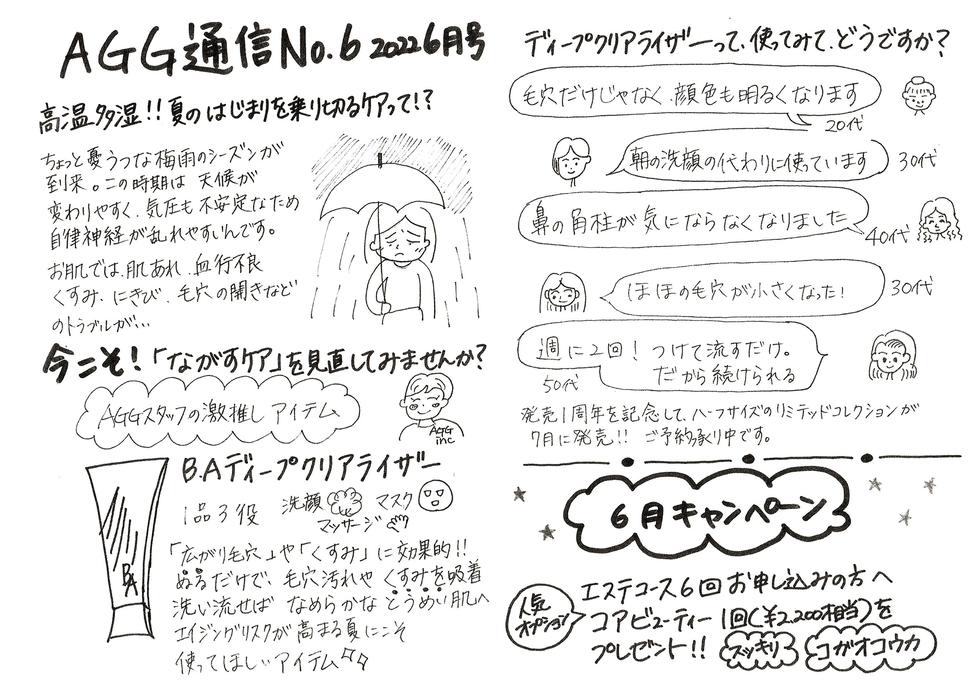 AGG通信No.6 2022 6月号
高温多湿!!夏のはじまりを乗り切るケアって!?
ちょっと憂うつな梅雨のシーズンが
到来。この時期は 天候が
変わりやすく、気圧も不安定なため
自律神経が乱れやすいんです。
お肌では、肌あれ、血行不良
くすみ、にきび、毛穴の開きなど
のトラブルが...
今こそ!「ながすケア」を見直してみませんか?
AGGスタッフの激推しアイテム
AGG
inc
B.Aディープクリアライザー
1品3役 洗顔 マスク
マッサージ
BA
「広がり毛穴」や「くすみ」に効果的!!
ぬるだけで、毛穴汚れや くすみを吸着
洗い流せば なめらかな とうめい肌へ
エイジングリスクが高まる夏にこそ
使ってほしいアイテム
ディープクリアライザーって、使ってみて、どうですか?
毛穴だけじゃなく、顔色も明るくなります
20代
朝の洗顔の代わりに使っています 30代
鼻の角柱が気にならなくなりました
40代
ほほの毛穴が小さくなった! 30代
週に2回!つけて流すだけ。
だから続けられる
50代
発売1周年を記念して、ハーフサイズのリミテッドコレクションが
7月に発売!! ご予約承り中です。
6月キャンペーン
人気
オプション
エステコース6回お申し込みの方へ
コアビューティー1回(¥2,200相当)を
プレゼント!! スッキリ コガオコウカ